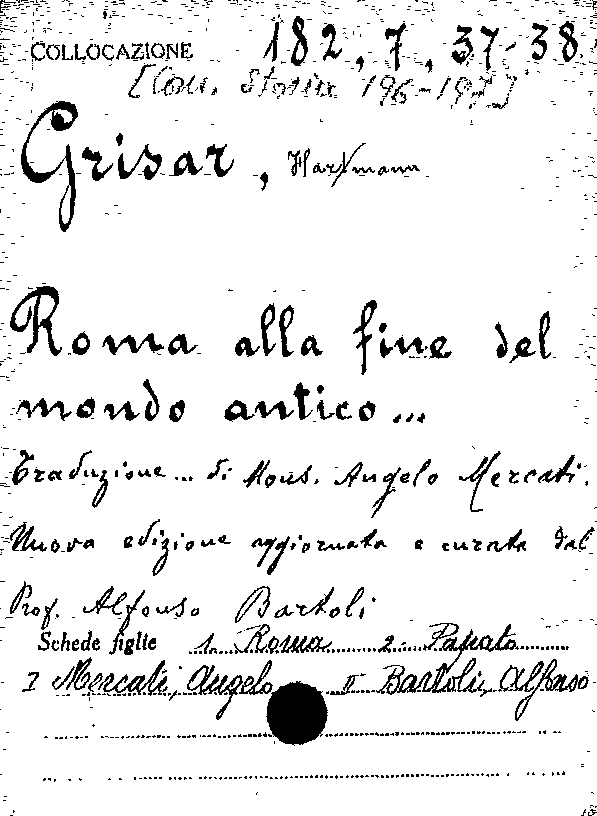 COLLOCAZIONE 182, 7, 37-38
[Con. Storia 196-197]
Grisar, Hartmann
Roma alla fine del
mondo antico...
Traduzione... di Mons. Angelo Mercati.
Nuova edizione aggiornata e curata dal
Prof. Alfonso Bartoli
Schede figlie 1. Roma 2. Papato
I Mercati, Angelo II Bartoli, Alfonso